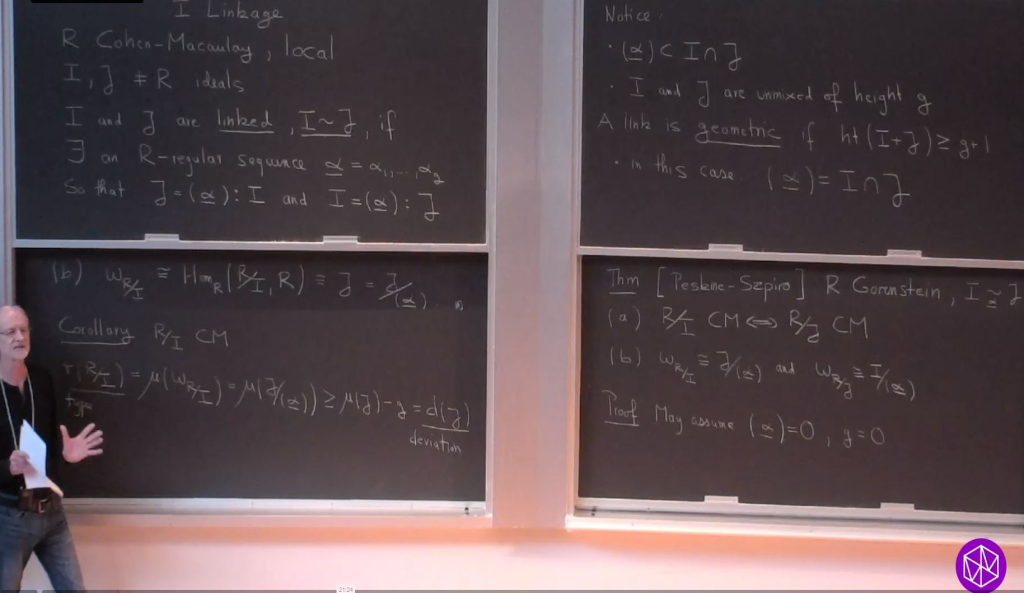 I Linkage
R Cohen-Macaulay, local
I, J ≠ R ideals
I and J are linked, I ~ J, if
∃ an R-regular sequence α = α₁,...,α_g
So that J = (α) : I and I = (α) : J
Notice:
· (α) ⊂ I ∩ J
· I and J are unmixed of height g
A link is geometric if ht(I+J) ≥ g+1
· in this case (α) = I ∩ J
(b) ω_{R/I} ≅ Hom_R(R/I, R) ≅ J = J/(α)
Corollary R/I CM
r(R/I) = μ(ω_{R/I}) = μ(J/(α)) ≥ μ(J) - g = d(J)
type
deviation
Thm [Peskine-Szpiro] R Gorenstein, I ~_α J
(a) R/I CM ⟺ R/J CM
(b) ω_{R/I} ≅ J/(α) and ω_{R/J} ≅ I/(α)
Proof May assume (α) = 0, g = 0